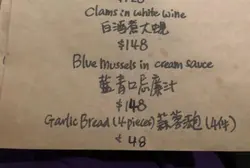 Clams in white wine
白酒煮大蜆
$148
Blue Mussels in cream sauce
藍青口忌廉汁
$148
Garlic Bread (4 pieces) 蒜茸包 (4件)
$48